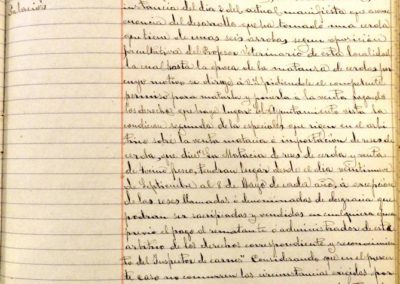 instancia del dia 2 del actual, manifiesta que a con-
secuencia del desarrollo que ha tomado una cerda
que tiene de unas seis arrobas, segun oposición
facultativa del Profesor Veterinario de esta localidad
la cual hasta la época de la matanza de cerdos por
cuyo motivo se dirige á V. pidiendole el competente
permiso para matarla y ponerla á la venta pagando
los derechos que haya lugar. El Ayuntamiento vista la
condicion segunda de las especiales que rigen en el arbi-
trio sobre la venta matacia é importación de reses de
cerda, que dice "La Matacia de reses de cerda y venta
de tocino fresco, tendran lugar desde el dia veintinueve
de Septiembre al 8 de Mayo de cada año, á excepcion
de las reses llamadas ó denominadas de desgracia que
podran ser sacrificadas y vendidas en cualquiera epoca
previo el pago al rematante ó administrador de este
arbitrio de los derechos correspondiente y reconocimien-
to del Inspector de carnes". Considerando que en el presen-
te caso no concurren las circunstancias exigidas por